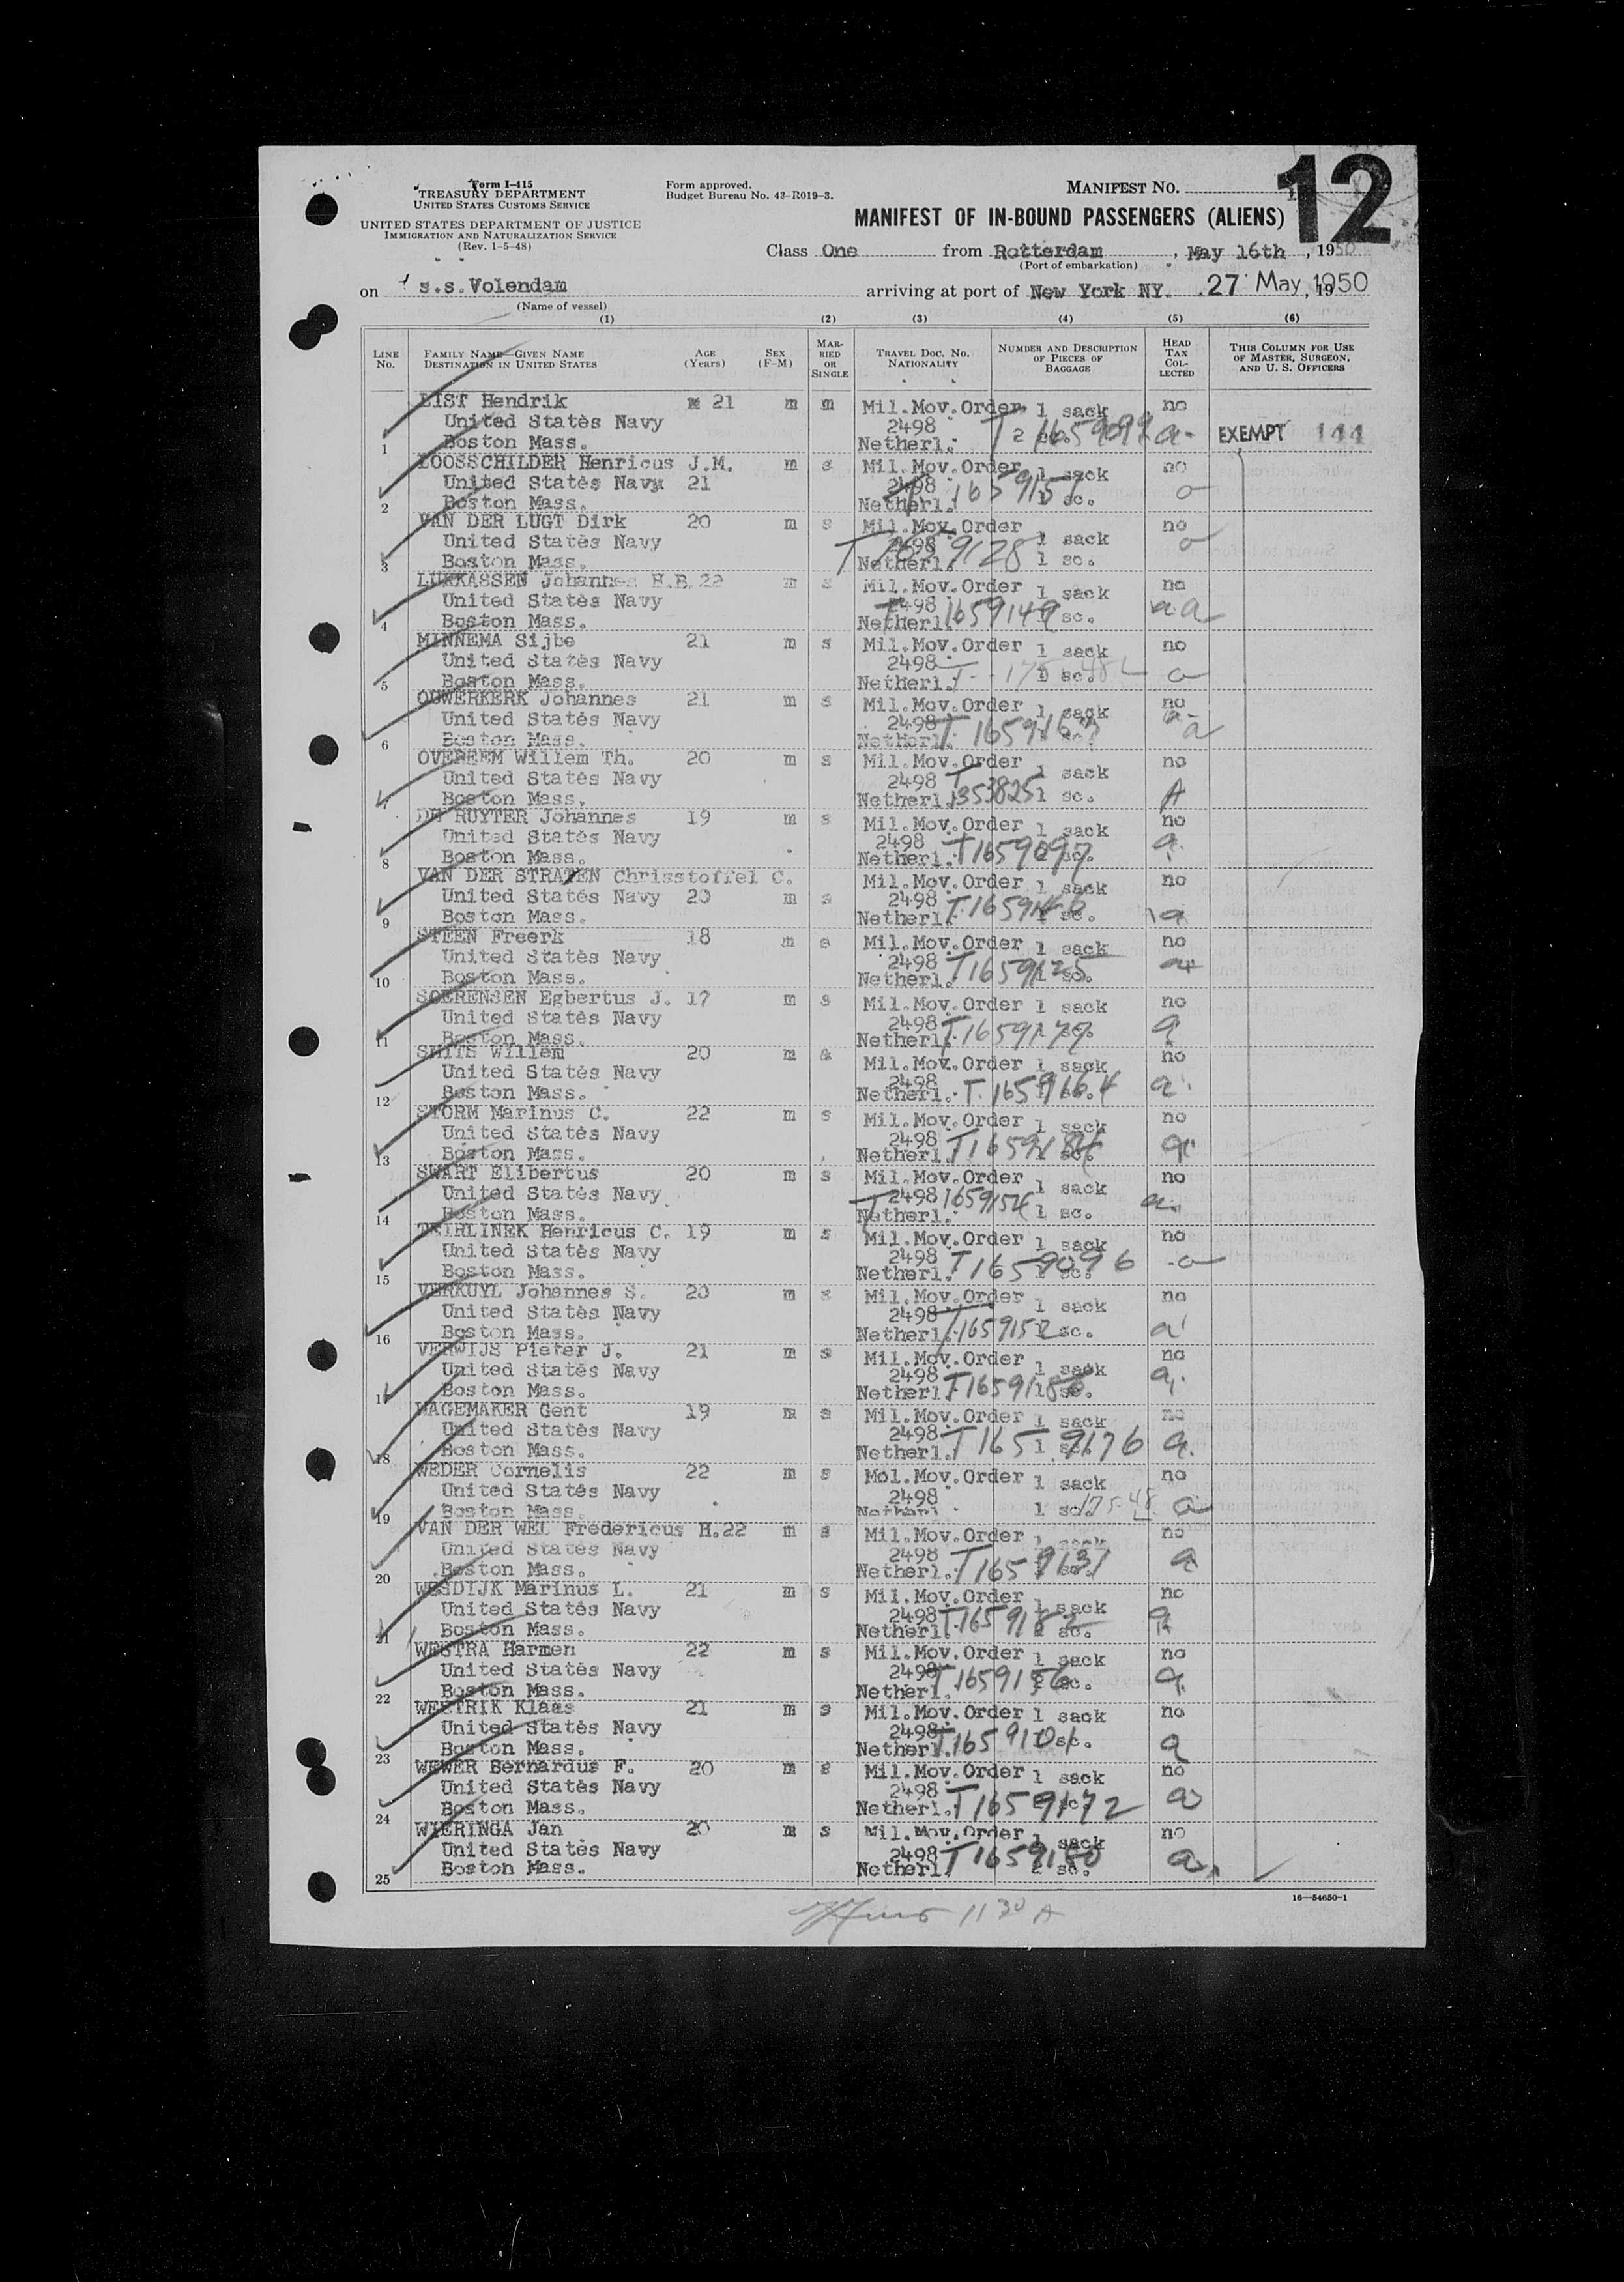 Form I-415
TREASURY DEPARTMENT
UNITED STATES CUSTOMS SERVICE
UNITED STATES DEPARTMENT OF JUSTICE
IMMIGRATION AND NATURALIZATION SERVICE
(Rev. 1-5-48)
Form approved.
Budget Bureau No. 43-R019-3.
MANIFEST NO.
12
MANIFEST OF IN-BOUND PASSENGERS (ALIENS)
Class One from Rotterdam, May 16th, 1950
(Port of embarkation)
on s.s. Volendam arriving at port of New York NY. 27 May, 1950
(Name of vessel)
(1) (2) (3) (4) (5) (6)
LINE No. FAMILY NAME—GIVEN NAME DESTINATION IN UNITED STATES AGE (Years) SEX (F-M) MARRIED OR SINGLE TRAVEL DOC. NO. NATIONALITY NUMBER AND DESCRIPTION OF PIECES OF BAGGAGE HEAD TAX COLLECTED THIS COLUMN FOR USE OF MASTER, SURGEON, AND U. S. OFFICERS
LIST Hendrik 21 m m Mil.Mov.Order 1 sack no
United States Navy 2498
1 Boston Mass. Netherl. 2 T 1659099 a- EXEMPT 144
LOOSSCHILDER Henricus J.M. m s Mil.Mov.Order 1 sack no
United States Navy 21 2498
2 Boston Mass. Netherl. 1 sc.
VAN DER LUGT Dirk 20 m s Mil.Mov.Order 1 sack no
United States Navy 2498 T 1659128
3 Boston Mass. Netherl. 1 sc.
LUKKASSEN Johannes H.B. 22 m s Mil.Mov.Order 1 sack no
United States Navy 2498 T 1659149
4 Boston Mass. Netherl. sc. a
MINNEMA Sijbe 21 m s Mil.Mov.Order 1 sack no
United States Navy 2498
5 Boston Mass. Netherl. sc. a
OUWERKERK Johannes 21 m s Mil.Mov.Order 1 sack no
United States Navy 2498 T 1659163
6 Boston Mass. Netherl. a
OVEREEM Willem Th. 20 m s Mil.Mov.Order 1 sack no
United States Navy 2498 T
7 Boston Mass. Netherl. 1353825 1 sc. A
DE RUYTER Johannes 19 m s Mil.Mov.Order 1 sack no
United States Navy 2498
8 Boston Mass. Netherl. T1659097 sc. a
VAN DER STRATEN Chrisstoffel C. Mil.Mov.Order 1 sack no
United States Navy 20 m s 2498
9 Boston Mass. Netherl. sc. a
STEEN Freerk 18 m s Mil.Mov.Order 1 sack no
United States Navy 2498
10 Boston Mass. Netherl. T1659125 sc. a
SOERENSEN Egbertus J. 17 m s Mil.Mov.Order 1 sack no
United States Navy 2498
11 Boston Mass. Netherl. T1659179 a
SMITS Willem 20 m s Mil.Mov.Order 1 sack no
United States Navy 2498
12 Boston Mass. Netherl. T. 1659164 a
STORM Marinus C. 22 m s Mil.Mov.Order 1 sack no
United States Navy 2498
13 Boston Mass. Netherl. T1659184 a
SWART Elibertus 20 m s Mil.Mov.Order 1 sack no
United States Navy 2498 T 1659154
14 Boston Mass. Netherl. 1 sc. a
TEIRLINEK Henricus C. 19 m s Mil.Mov.Order 1 sack no
United States Navy 2498
15 Boston Mass. Netherl. T1659096 sc. a
VERKUYL Johannes S. 20 m s Mil.Mov.Order 1 sack no
United States Navy 2498
16 Boston Mass. Netherl. T1659152 sc. a
VERWIJS Pieter J. 21 m s Mil.Mov.Order 1 sack no
United States Navy 2498
17 Boston Mass. Netherl. sc. a
WAGEMAKER Gent 19 m s Mil.Mov.Order 1 sack no
United States Navy 2498
18 Boston Mass. Netherl. T 1659176 a
WEDER Cornelis 22 m s Mol.Mov.Order 1 sack no
United States Navy 2498
19 Boston Mass. Netherl 1 sc. a
VAN DER WEL Fredericus H. 22 m s Mil.Mov.Order 1 sack no
United States Navy 2498
20 Boston Mass. Netherl. T1659131 a
WESDIJK Marinus L. 21 m s Mil.Mov.Order 1 sack no
United States Navy 2498 T1659182
21 Boston Mass. Netherl. sc. a
WESTRA Harmen 22 m s Mil.Mov.Order 1 sack no
United States Navy 2498 T1659156
22 Boston Mass. Netherl. sc. a
WESTRIK Klaas 21 m s Mil.Mov.Order 1 sack no
United States Navy 2498
23 Boston Mass. Netherl. sc. a
WEWER Bernardus F. 20 m s Mil.Mov.Order 1 sack no
United States Navy 2498
24 Boston Mass. Netherl. T1659172 a
WIERINGA Jan 20 m s Mil.Mov.Order 1 sack no
United States Navy 2498 T1659180
25 Boston Mass. Netherl. sc. a
16—54650-1
1130 A